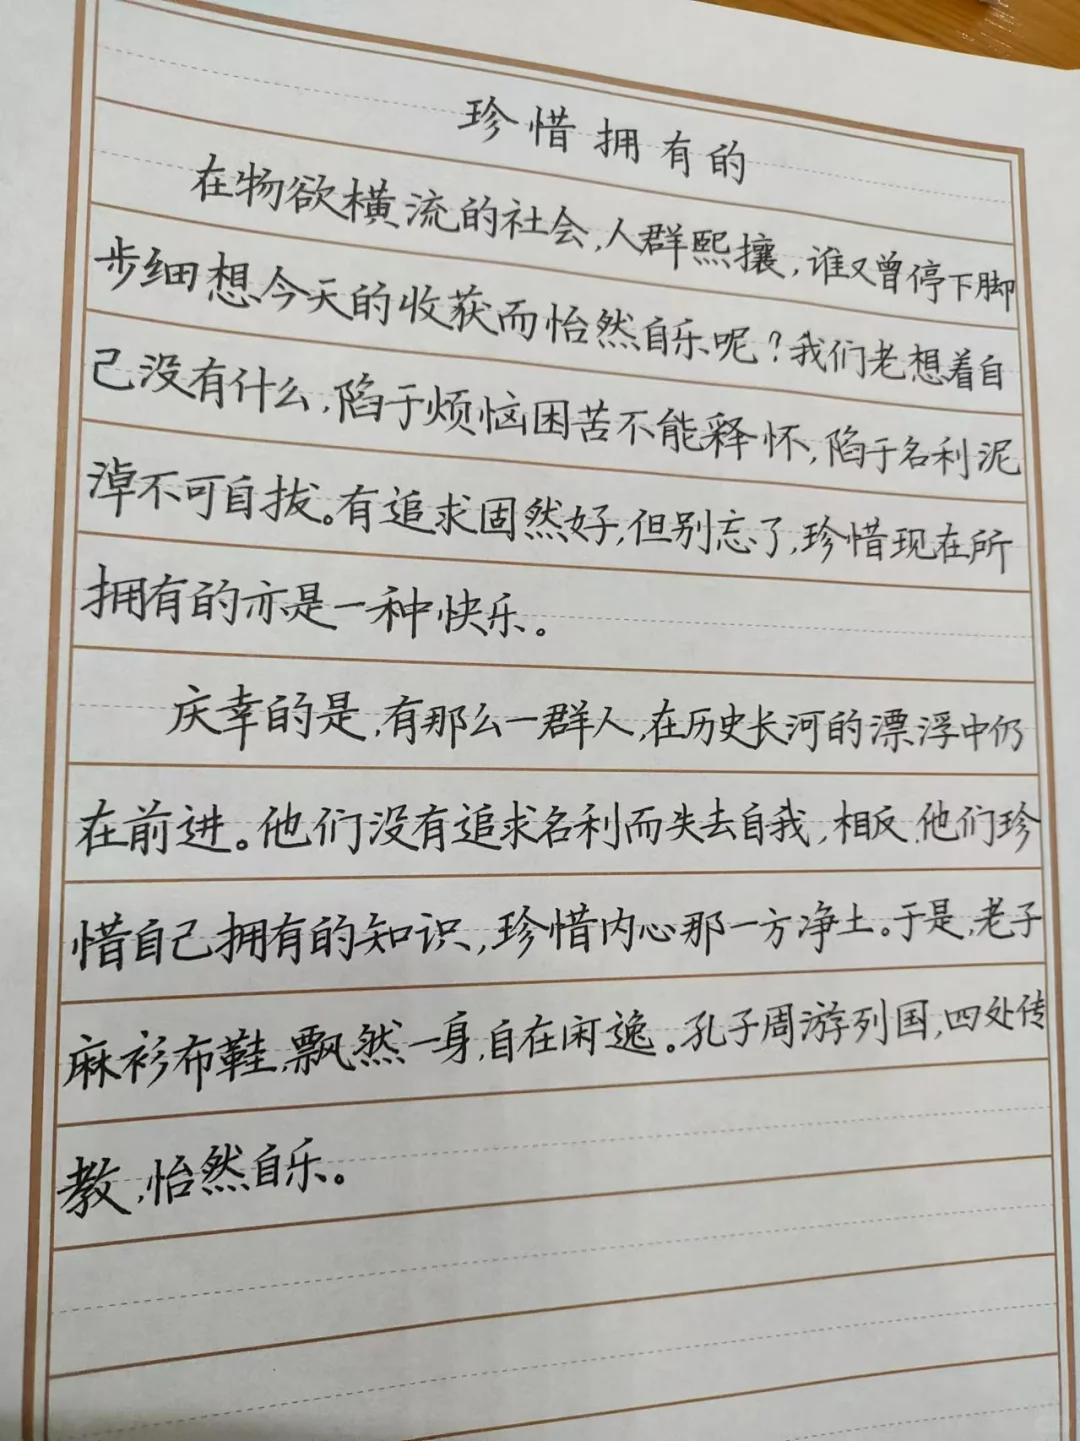 珍惜拥有的
在物欲横流的社会,人群熙攘,谁又曾停下脚
步细想今天的收获而怡然自乐呢?我们老想着自
己没有什么,陷于烦恼困苦不能释怀,陷于名利泥
淖不可自拔。有追求固然好,但别忘了,珍惜现在所
拥有的亦是一种快乐。
庆幸的是,有那么一群人,在历史长河的漂浮中仍
在前进。他们没有追求名利而失去自我,相反,他们珍
惜自己拥有的知识,珍惜内心那一方净土。于是,老子
麻衫布鞋,飘然一身,自在闲逸。孔子周游列国,四处传
教,怡然自乐。